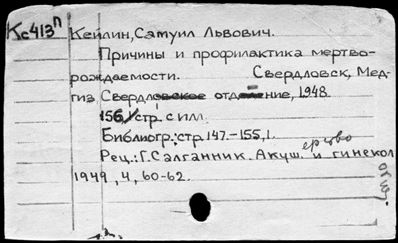 Кс413п Кейлин, Самуил Львович.
Причины и профилактика мертво-
рождаемости. Свердловск, Мед-
гиз, Свердловское отделение, 1948.
156, 1 стр. с илл.
Библиогр.: стр. 147.-155, 1.
Рец.: Г. Салганник. Акушерство и гинекол
1949, 4, 60-62.